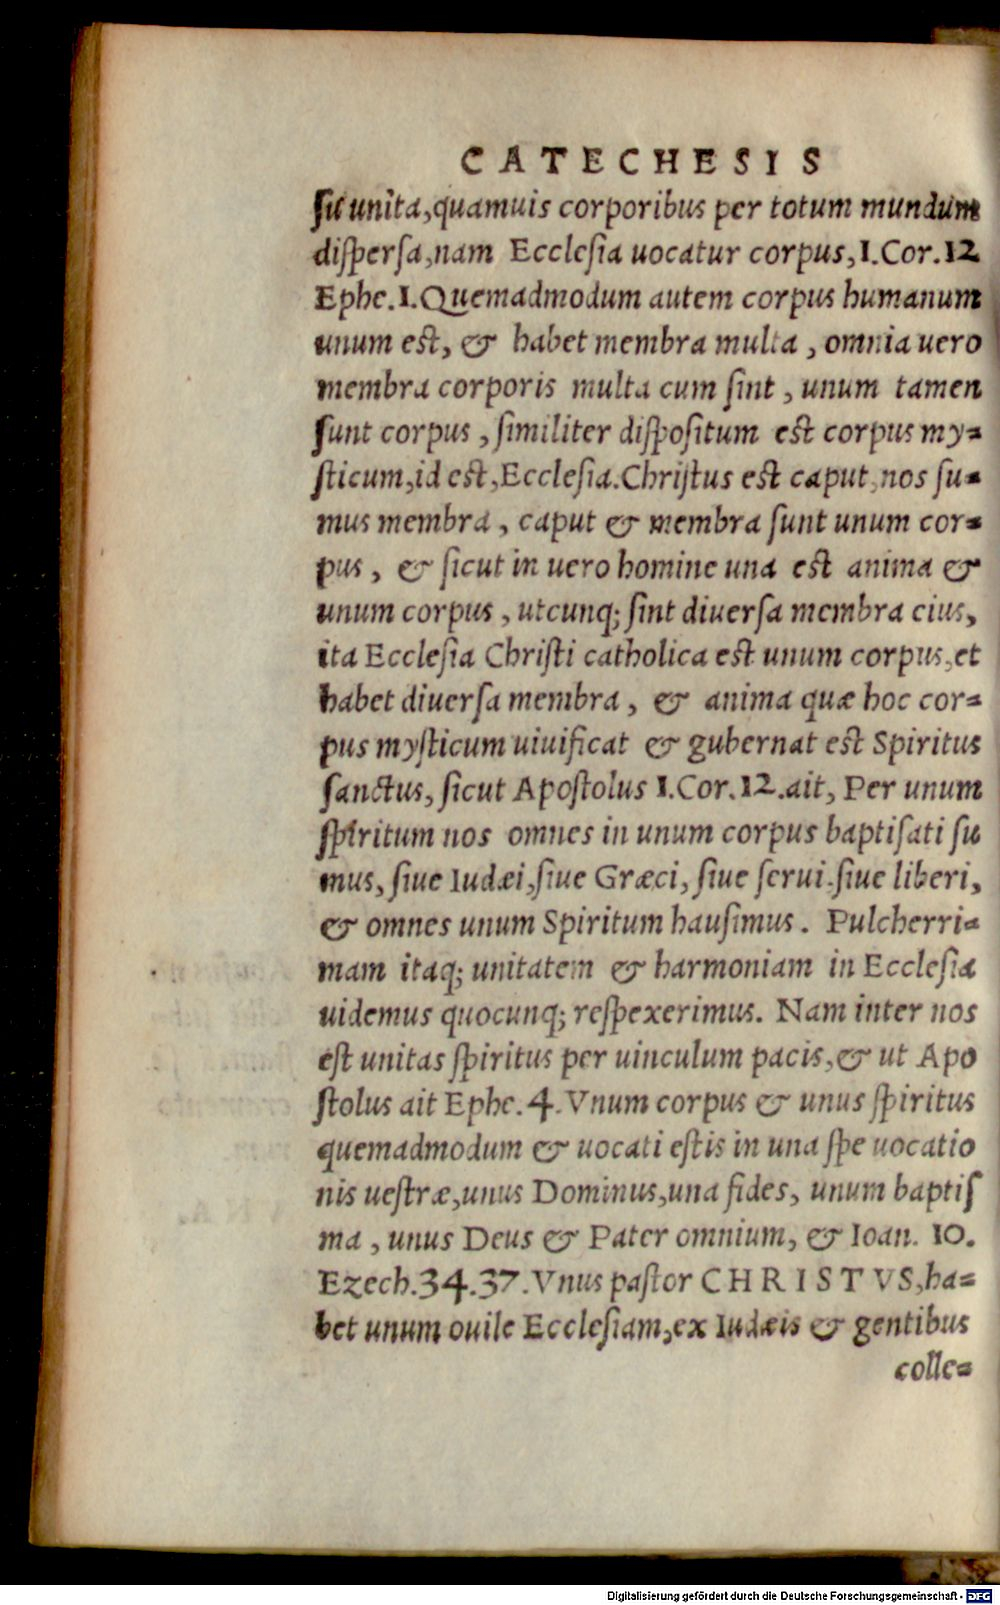 CATECHESIS
ſu unita, quamuis corporibus per totum mundum
diſperſa, nam Eccleſia uocatur corpus, 1. Cor. 12
Ephe. 1. Quemadmodum autem corpus humanum
unum est, & habet membra multa, omnia uero
membra corporis multa cum ſint, unum tamen
ſunt corpus, ſimiliter diſpoſitum est corpus my=
ſticum, id est, Eccleſia. Chriſtus est caput, nos ſu=
mus membra, caput & membra ſunt unum cor=
pus, & ſicut in uero homine una est anima &
unum corpus, utcunq; ſint diuerſa membra eius,
ita Eccleſia Chriſti catholica est unum corpus, et
habet diuerſa membra, & anima quæ hoc cor=
pus myſticum uiuificat & gubernat est Spiritus
ſanctus, ſicut Apoſtolus 1. Cor. 12. ait, Per unum
ſpiritum nos omnes in unum corpus baptiſati ſu
mus, ſiue Iudæi, ſiue Græci, ſiue ſerui. ſiue liberi,
& omnes unum Spiritum hauſimus. Pulcherri=
mam itaq; unitatem & harmoniam in Eccleſia
uidemus quocunq; reſpexerimus. Nam inter nos
est unitas ſpiritus per uinculum pacis, & ut Apo
ſtolus ait Ephe. 4. Vnum corpus & unus ſpiritus
quemadmodum & uocati eſtis in una ſpe uocatio
nis ueſtræ, unus Dominus, una fides, unum baptiſ
ma, unus Deus & Pater omnium, & Ioan. 10.
Ezech. 34. 37. Vnus paſtor CHRISTVS, ha=
bet unum ouile Eccleſiam, ex Iudæis & gentibus
colle=
Digitalisierung gefördert durch die Deutsche Forschungsgemeinschaft - DFG